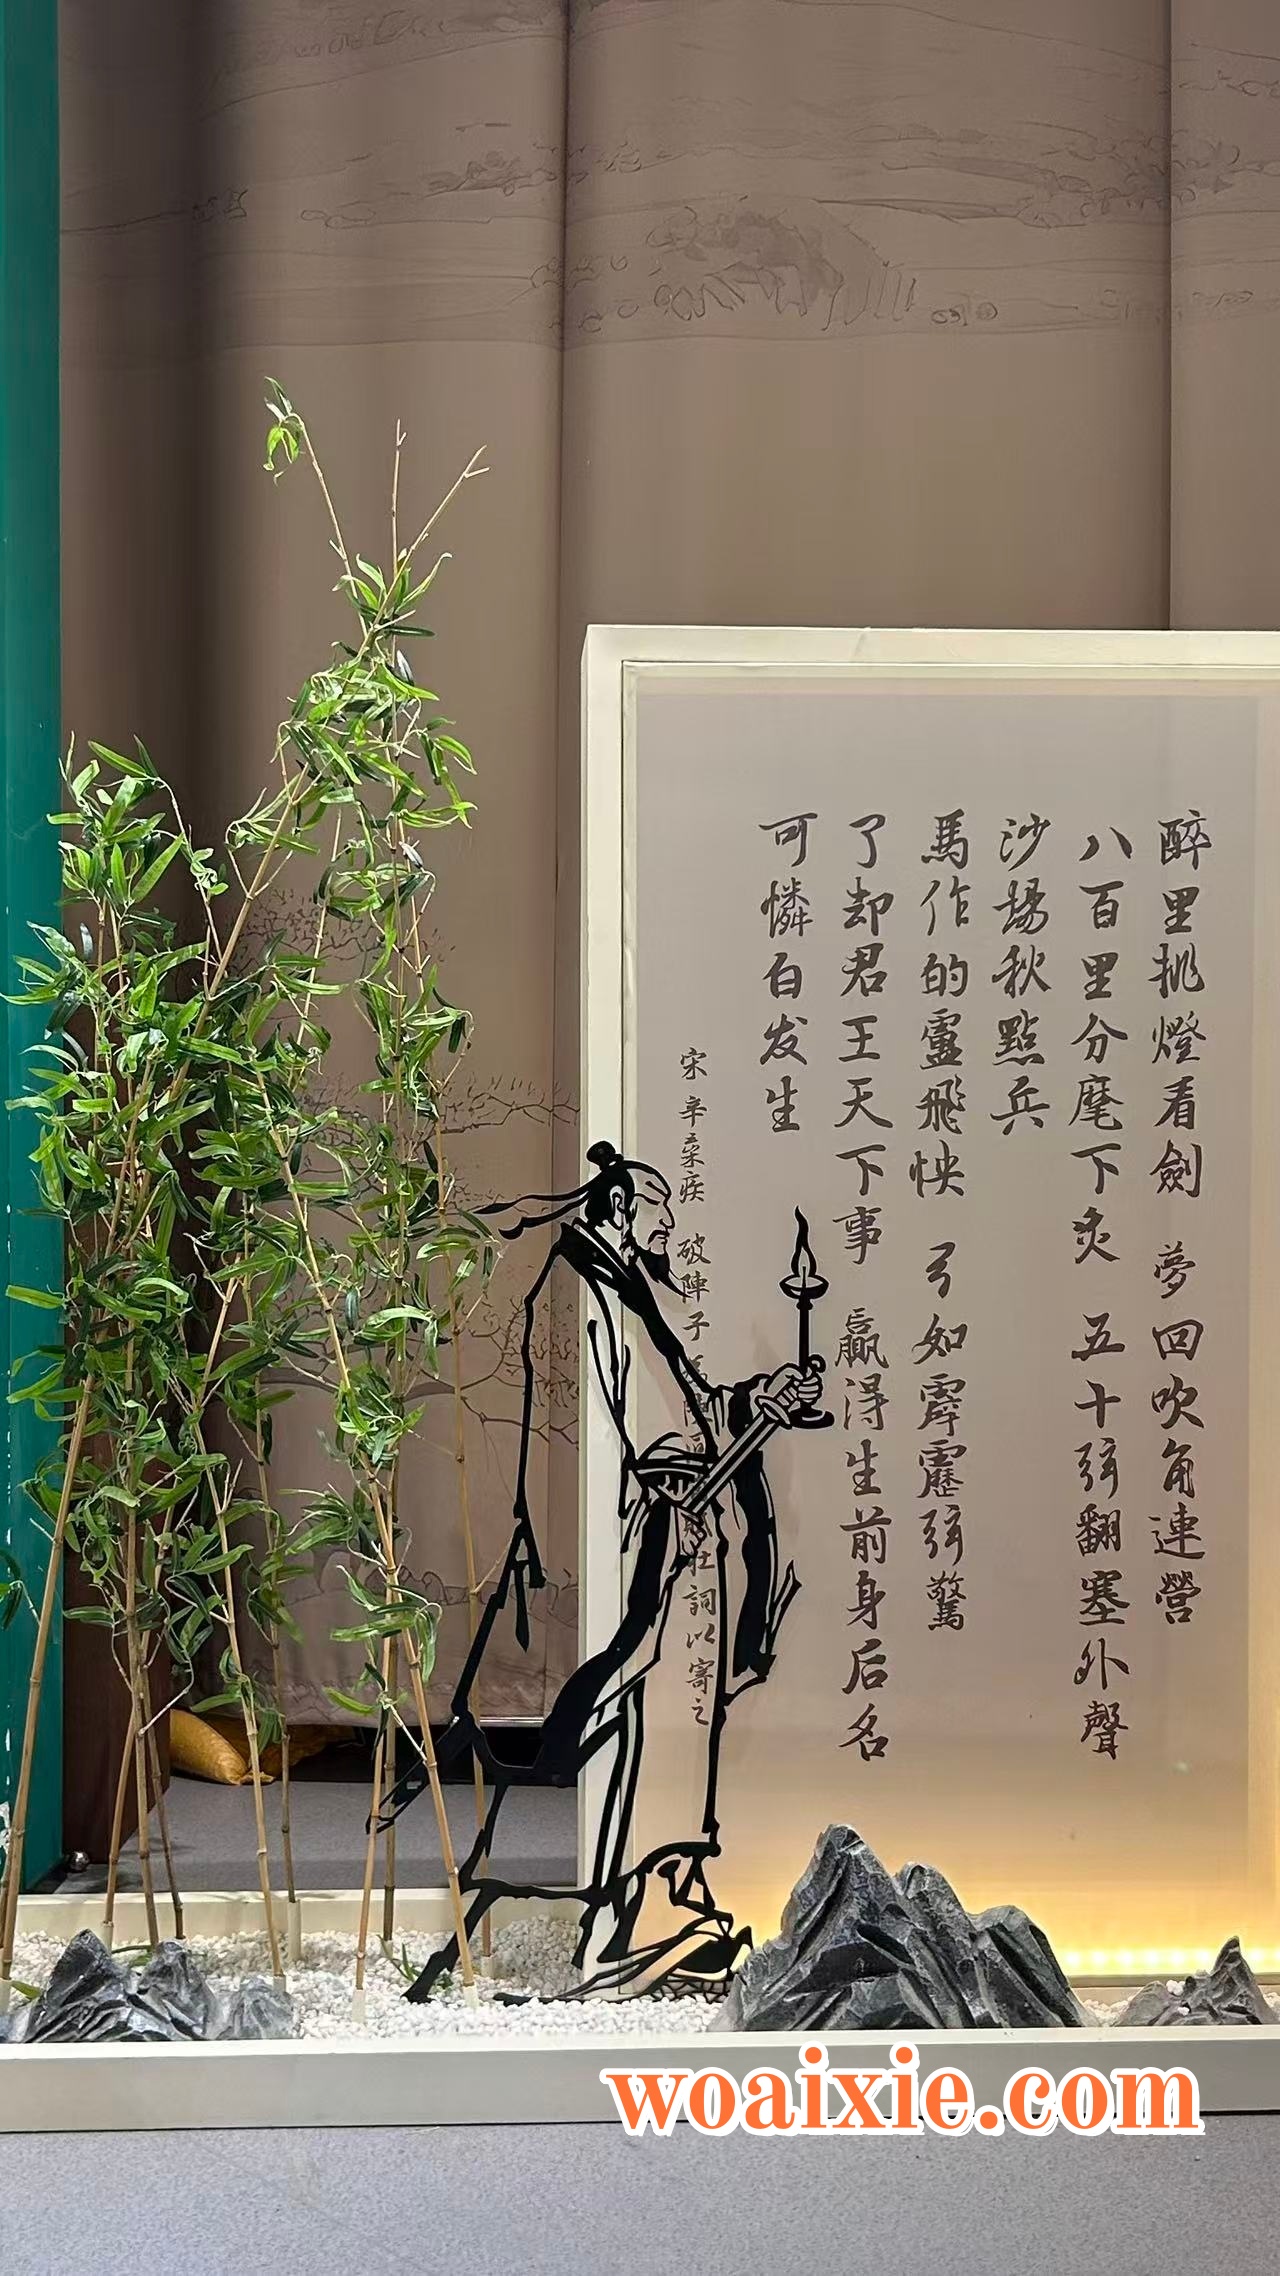 醉里挑燈看劍 夢回吹角連營
八百里分麾下炙 五十弦翻塞外聲
沙場秋點兵
馬作的盧飛快 弓如霹靂弦驚
了却君王天下事 贏得生前身后名
可憐白发生
宋 辛棄疾 破陣子 壯詞以寄之
woaixie.com